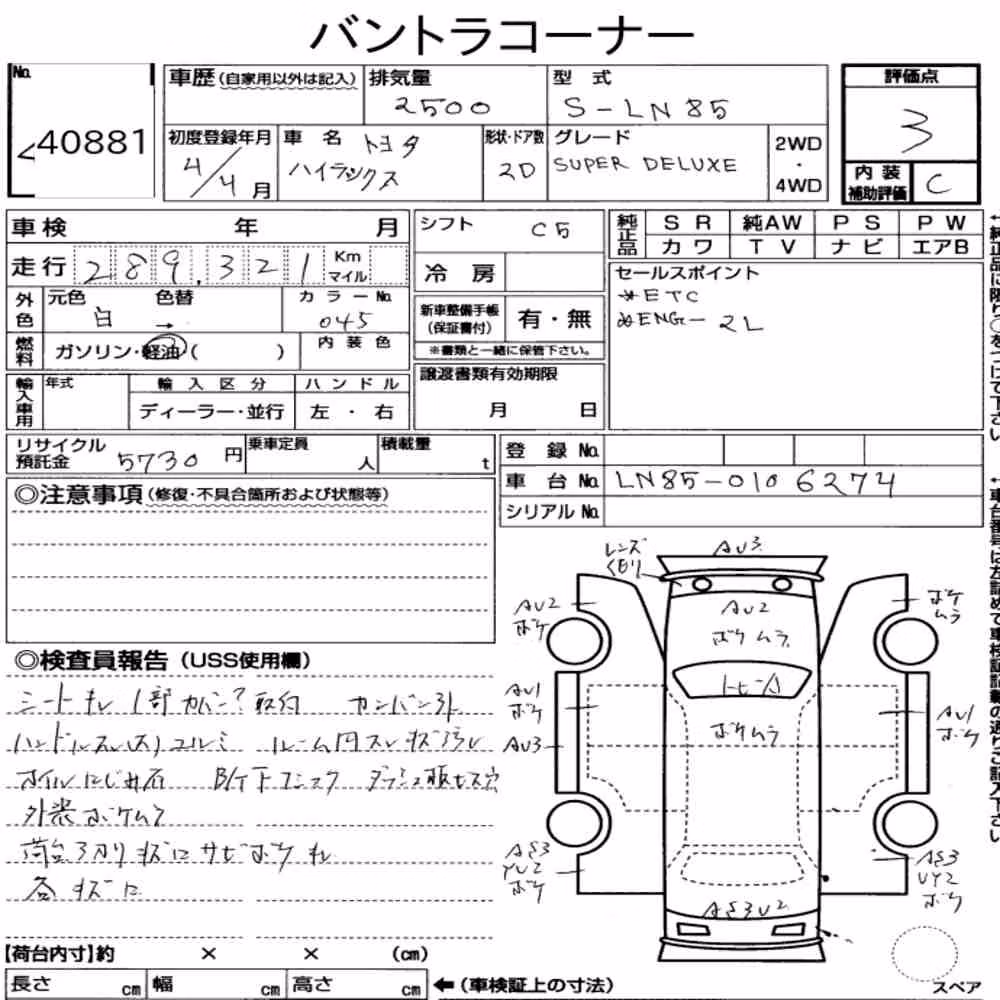 バントラコーナー
No. 40881
車歴(自家用以外は記入)
排気量 2500
型式 S-LN85
評価点 3
初度登録年月 4/4月
車名 トヨタ ハイラックス
形状・ドア数 2D
グレード SUPER DELUXE
2WD ・ 4WD
内装補助評価 C
車検 年 月
シフト C5
純正品 SR 純AW PS PW
カワ TV ナビ エアB
走行 289,321 Km マイル
冷房
セールスポイント
*ETC
*ENG-2L
外色 元色 白 色替 → カラーNo. 045
新車整備手帳(保証書付) 有・無
※書類と一緒に保管下さい。
燃料 ガソリン・軽油・( ) 内装色
輸入車用 年式 輸入区分 ハンドル
ディーラー・並行 左・右
譲渡書類有効期限
月 日
リサイクル預託金 5730円
乗車定員 人
積載量 t
登録No.
車台No. LN85-0106274
シリアルNo.
◎注意事項(修復・不具合箇所および状態等)
◎検査員報告(USS使用欄)
シートキレ 1部カバン?取付 カンバン外
ハンドルスレ ユルミ ルーム内スレキズヨゴレ
オイルにじみ有 B/ケ下 ダッシュ板ビス穴
外装ボケムラ
荷台 キズ凹サビボケ
各キズ凹
レンズくもり
AU3
AU2 ボケ
AU2 ボケムラ
ボケムラ
AU1 ボケ
ボケムラ
AU1 ボケ
AU3
AS3 YU2 ボケ
AS3 UY2 ボケ
AS3U2
【荷台内寸】約 × × (cm)
長さ cm 幅 cm 高さ cm
←(車検証上の寸法)
スペア
←純正品に限り○をつけて下さい
←車台番号は左詰めで車検証記載の通りご記入下さい